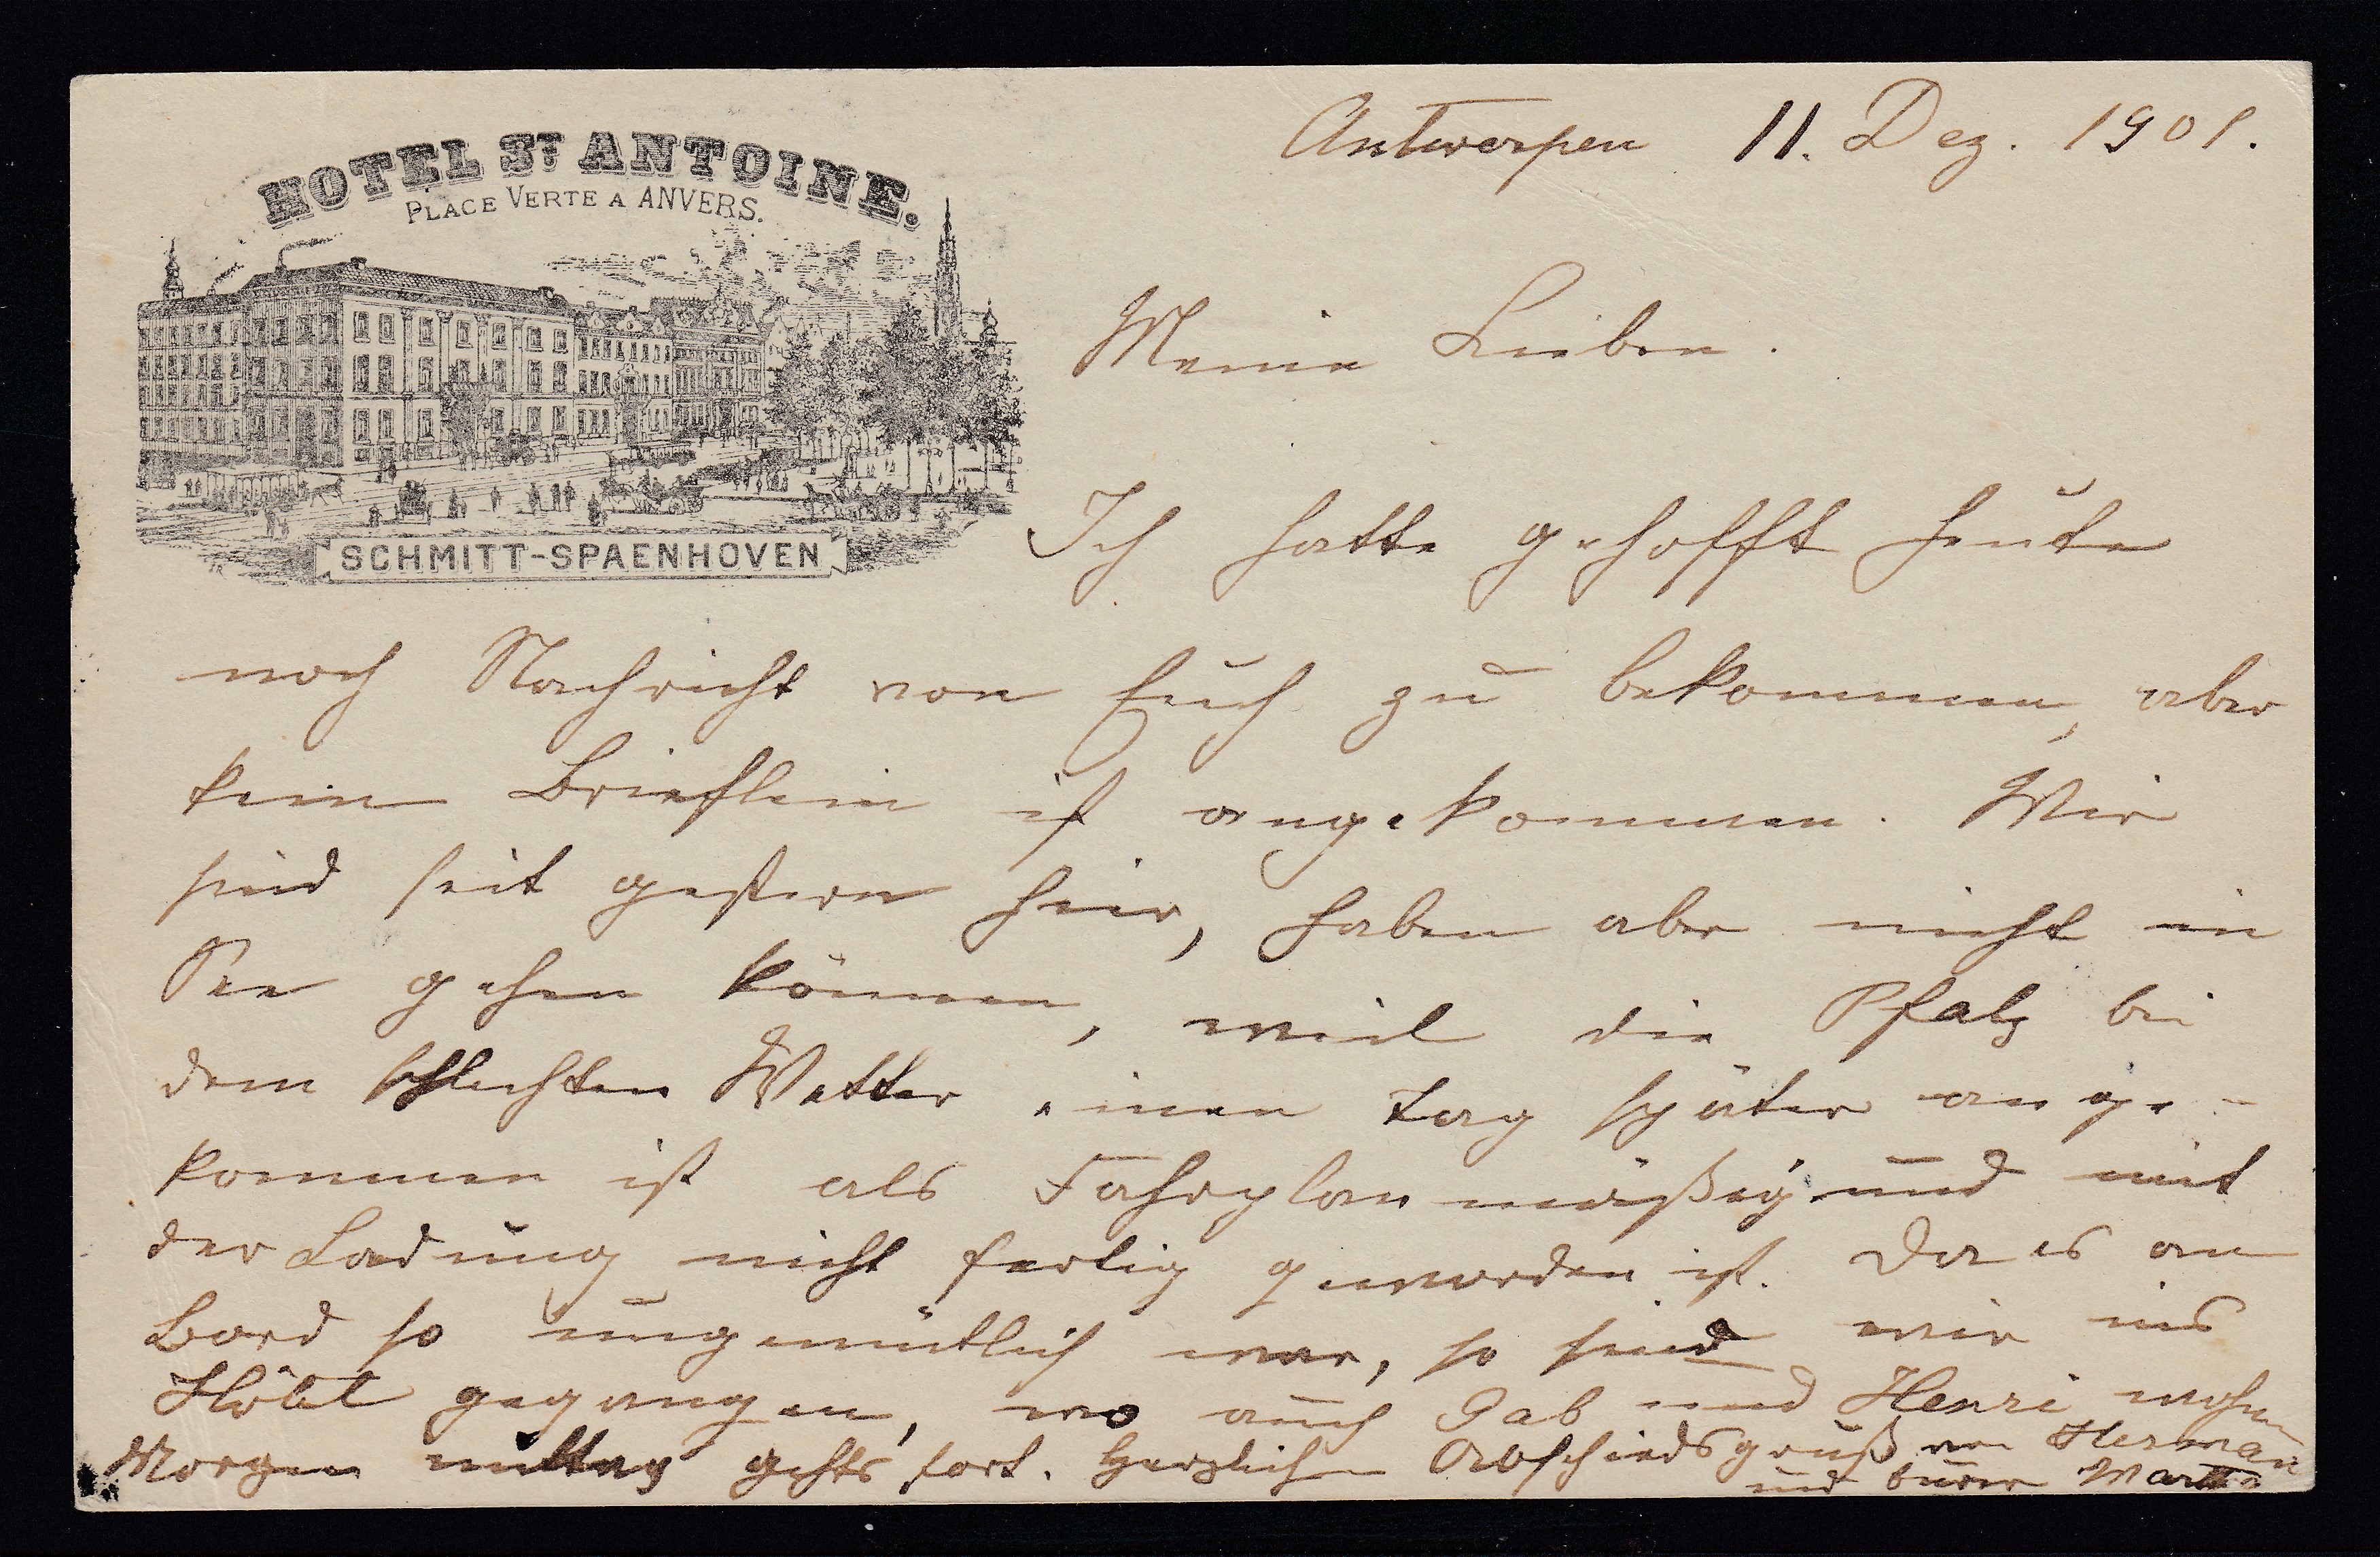 HOTEL ST ANTOINE.
PLACE VERTE A ANVERS.
SCHMITT-SPAENHOVEN
Antwerpen 11. Dez. 1901.
Meine Lieben.
Ich hatte gehofft heute
noch Nachricht von Euch zu bekommen, aber
kein Brieflein ist angekommen. Wir
sind seit gestern hier, haben aber nicht in
See gehen können, weil die Pfalz bei
dem schlechten Wetter einen Tag später ange-
kommen ist als Fahrplanmäßig und mit
der Ladung nicht fertig geworden ist. Da es an
Bord so ungemütlich war, so sind wir ins
Hôtel gegangen, wo auch Gab und Henri wohnen
Morgen mittag gehts fort. Herzlichen Abschiedsgruß von Herman
und Eurer Martha